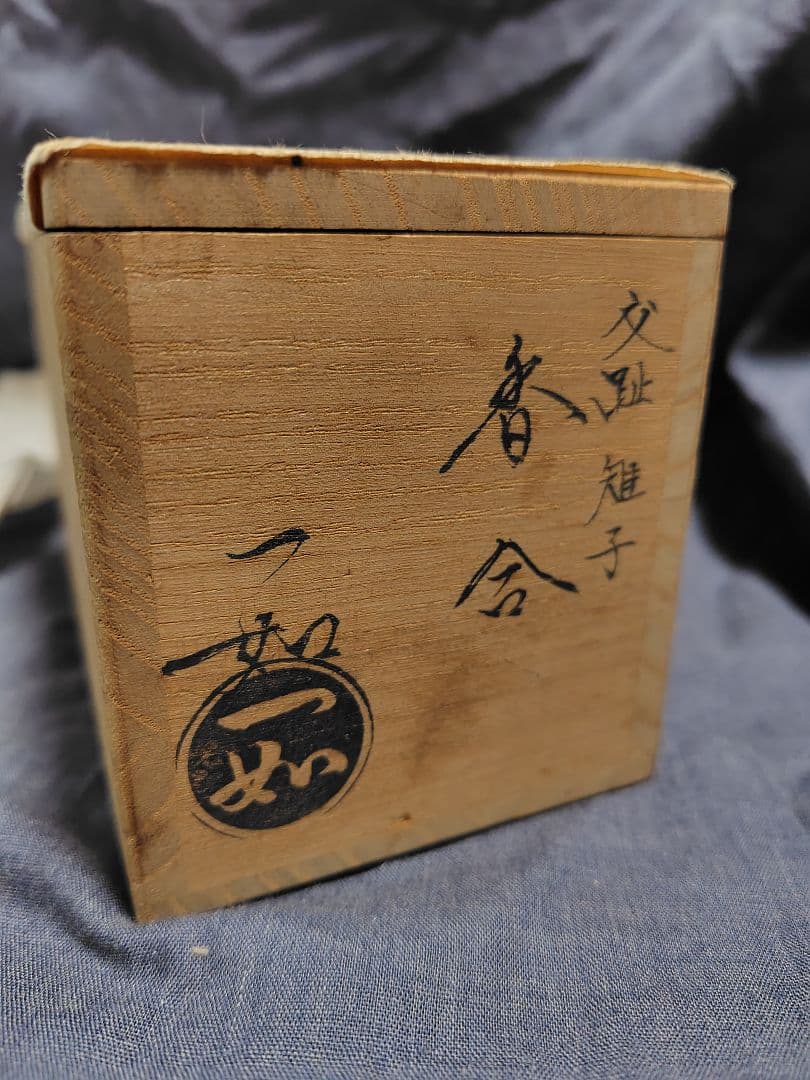 交趾雉子
香合
一如
一如